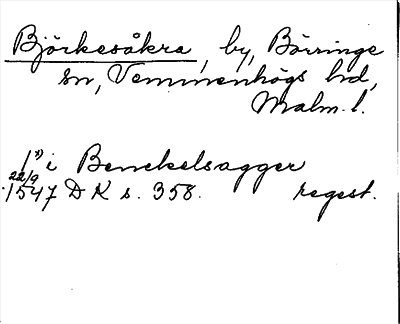 Björkesåkra, by, Börringe
sn, Vemmenhögs hd,
Malm. l.
1") i Benekelsagger
22/9
1547 DK s. 358. regest.